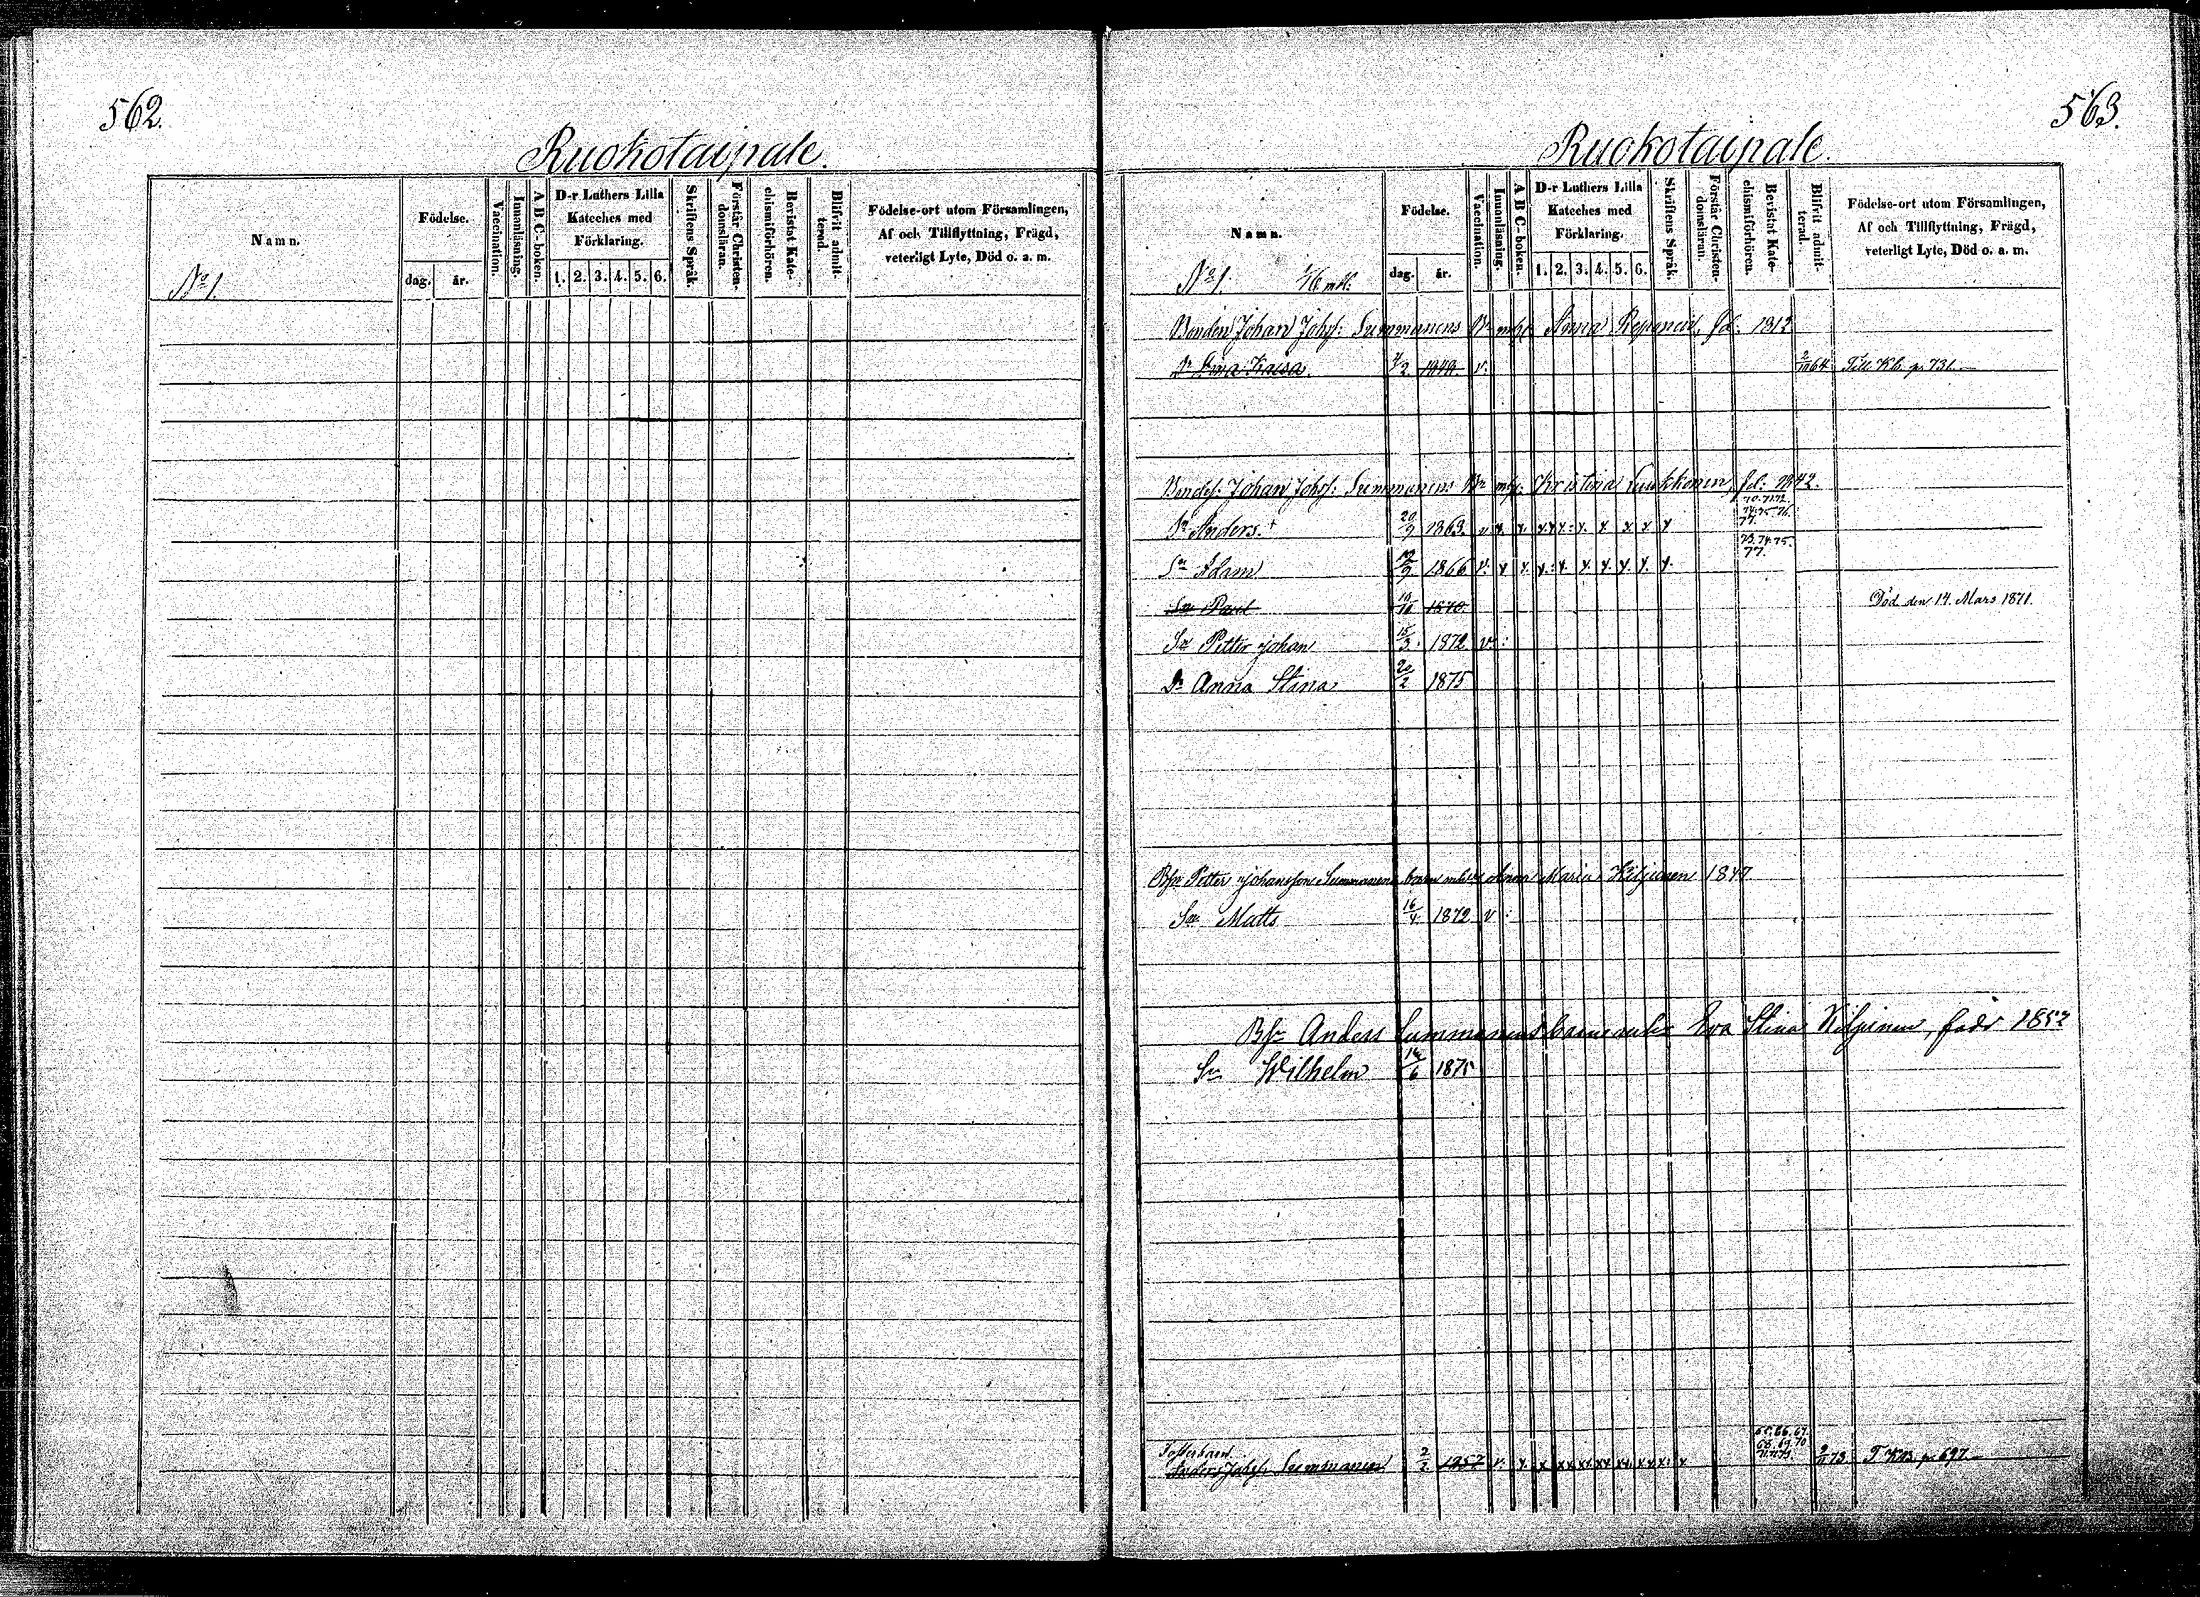 562.
Ruokotaipale.
Namn.
Födelse.
dag.
år.
Vaccination.
Innanläsning.
A B C-boken.
D-r Luthers Lilla
Kateches med
Förklaring.
1. 2. 3. 4. 5. 6.
Skriftens Språk.
Förstår Christen-
domsläran.
Bevistat Kate-
chismförhören.
Blifvit admit-
terad.
Födelse-ort utom Församlingen,
Af och Tillflyttning, Frägd,
veterligt Lyte, Död o. a. m.
No 1.
563.
Ruokotaipale.
Namn.
Födelse.
dag. år.
Vaccination.
Innanläsning.
A B C-boken.
D-r Luthers Lilla
Kateches med
Förklaring.
1. 2. 3. 4. 5. 6.
Skriftens Språk.
Förstår Christen-
domsläran.
Bevistat Kate-
chismförhören.
Blifvit admit-
terad.
Födelse-ort utom Församlingen,
Af och Tillflyttning, Frägd,
veterligt Lyte, Död o. a. m.
No 1. mtl:
Bonden Johan Johsf: Summanens Bn Anna fd: 1812
Dr Kaisa. v. 64 Till Kb. p. 731.
Bondes: Johan Johsf: Summanens Bn Kristina Luukkonen fd: 1842.
Anders. 20/9 1863. v. x. x.
74. 75. 76.
77.
Sn Adam 1866 v. x x. x. x. x. x. x. x. x.
73. 74. 75.
77.
Sn Paul 1870 Död den 14. Mars 1871.
Sn Petter Johan 15/3 1872 v.
Dr Anna Stina 20/2 1875
Bsn Petter Johansson Summanens barn Anna Maria Kilpinen 1847
Sn Matts 16/4 1872 v
Bsn Anders Summanens barn Eva Stina Kilpinen, född 1852
Sn Wilhelm 1875
Fosterbarn
Anders Johsf: Summanen 2/2 1857 v. x. x
65. 66. 67.
68. 69. 70
73. T. KB. p. 697.